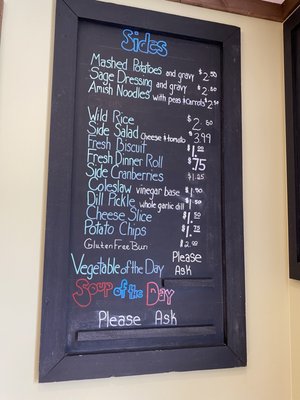 Sides
Mashed Potatoes and gravy $2.50
Sage Dressing and gravy $2.50
Amish Noodles with peas & carrots $2.50
Wild Rice $2.50
Side Salad cheese & tomato $3.99
Fresh Biscuit
Fresh Dinner Roll .75
Side Cranberries $1.25
Coleslaw vinegar base
Dill Pickle whole garlic dill
Cheese Slice
Potato Chips
Gluten Free Bun $2.00
Vegetable of the Day Please Ask
Soup of the Day
Please Ask